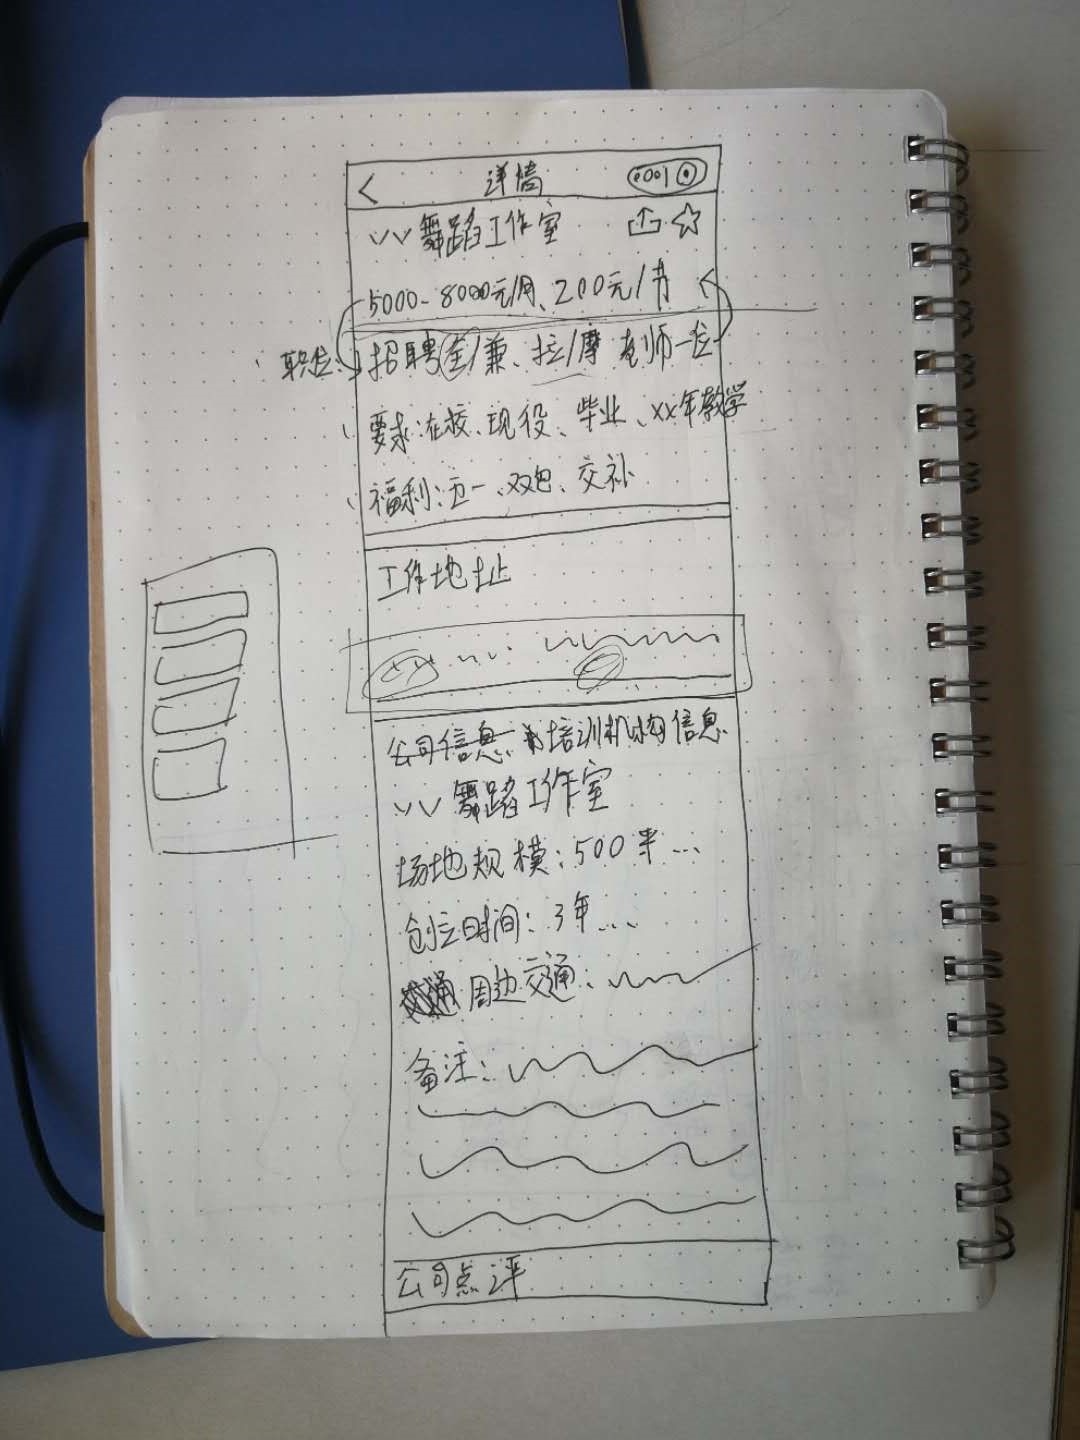 详情
VV舞蹈工作室
5000-8000元/月、200元/节
职位: 招聘全/兼、拉/摩 老师一位
要求:在校、现役、毕业、xx年教学
福利:五一、双包、交补
工作地址
公司信息 培训机构信息
VV舞蹈工作室
场地规模:500平...
创立时间:3年...
周边交通:
备注:
公司点评